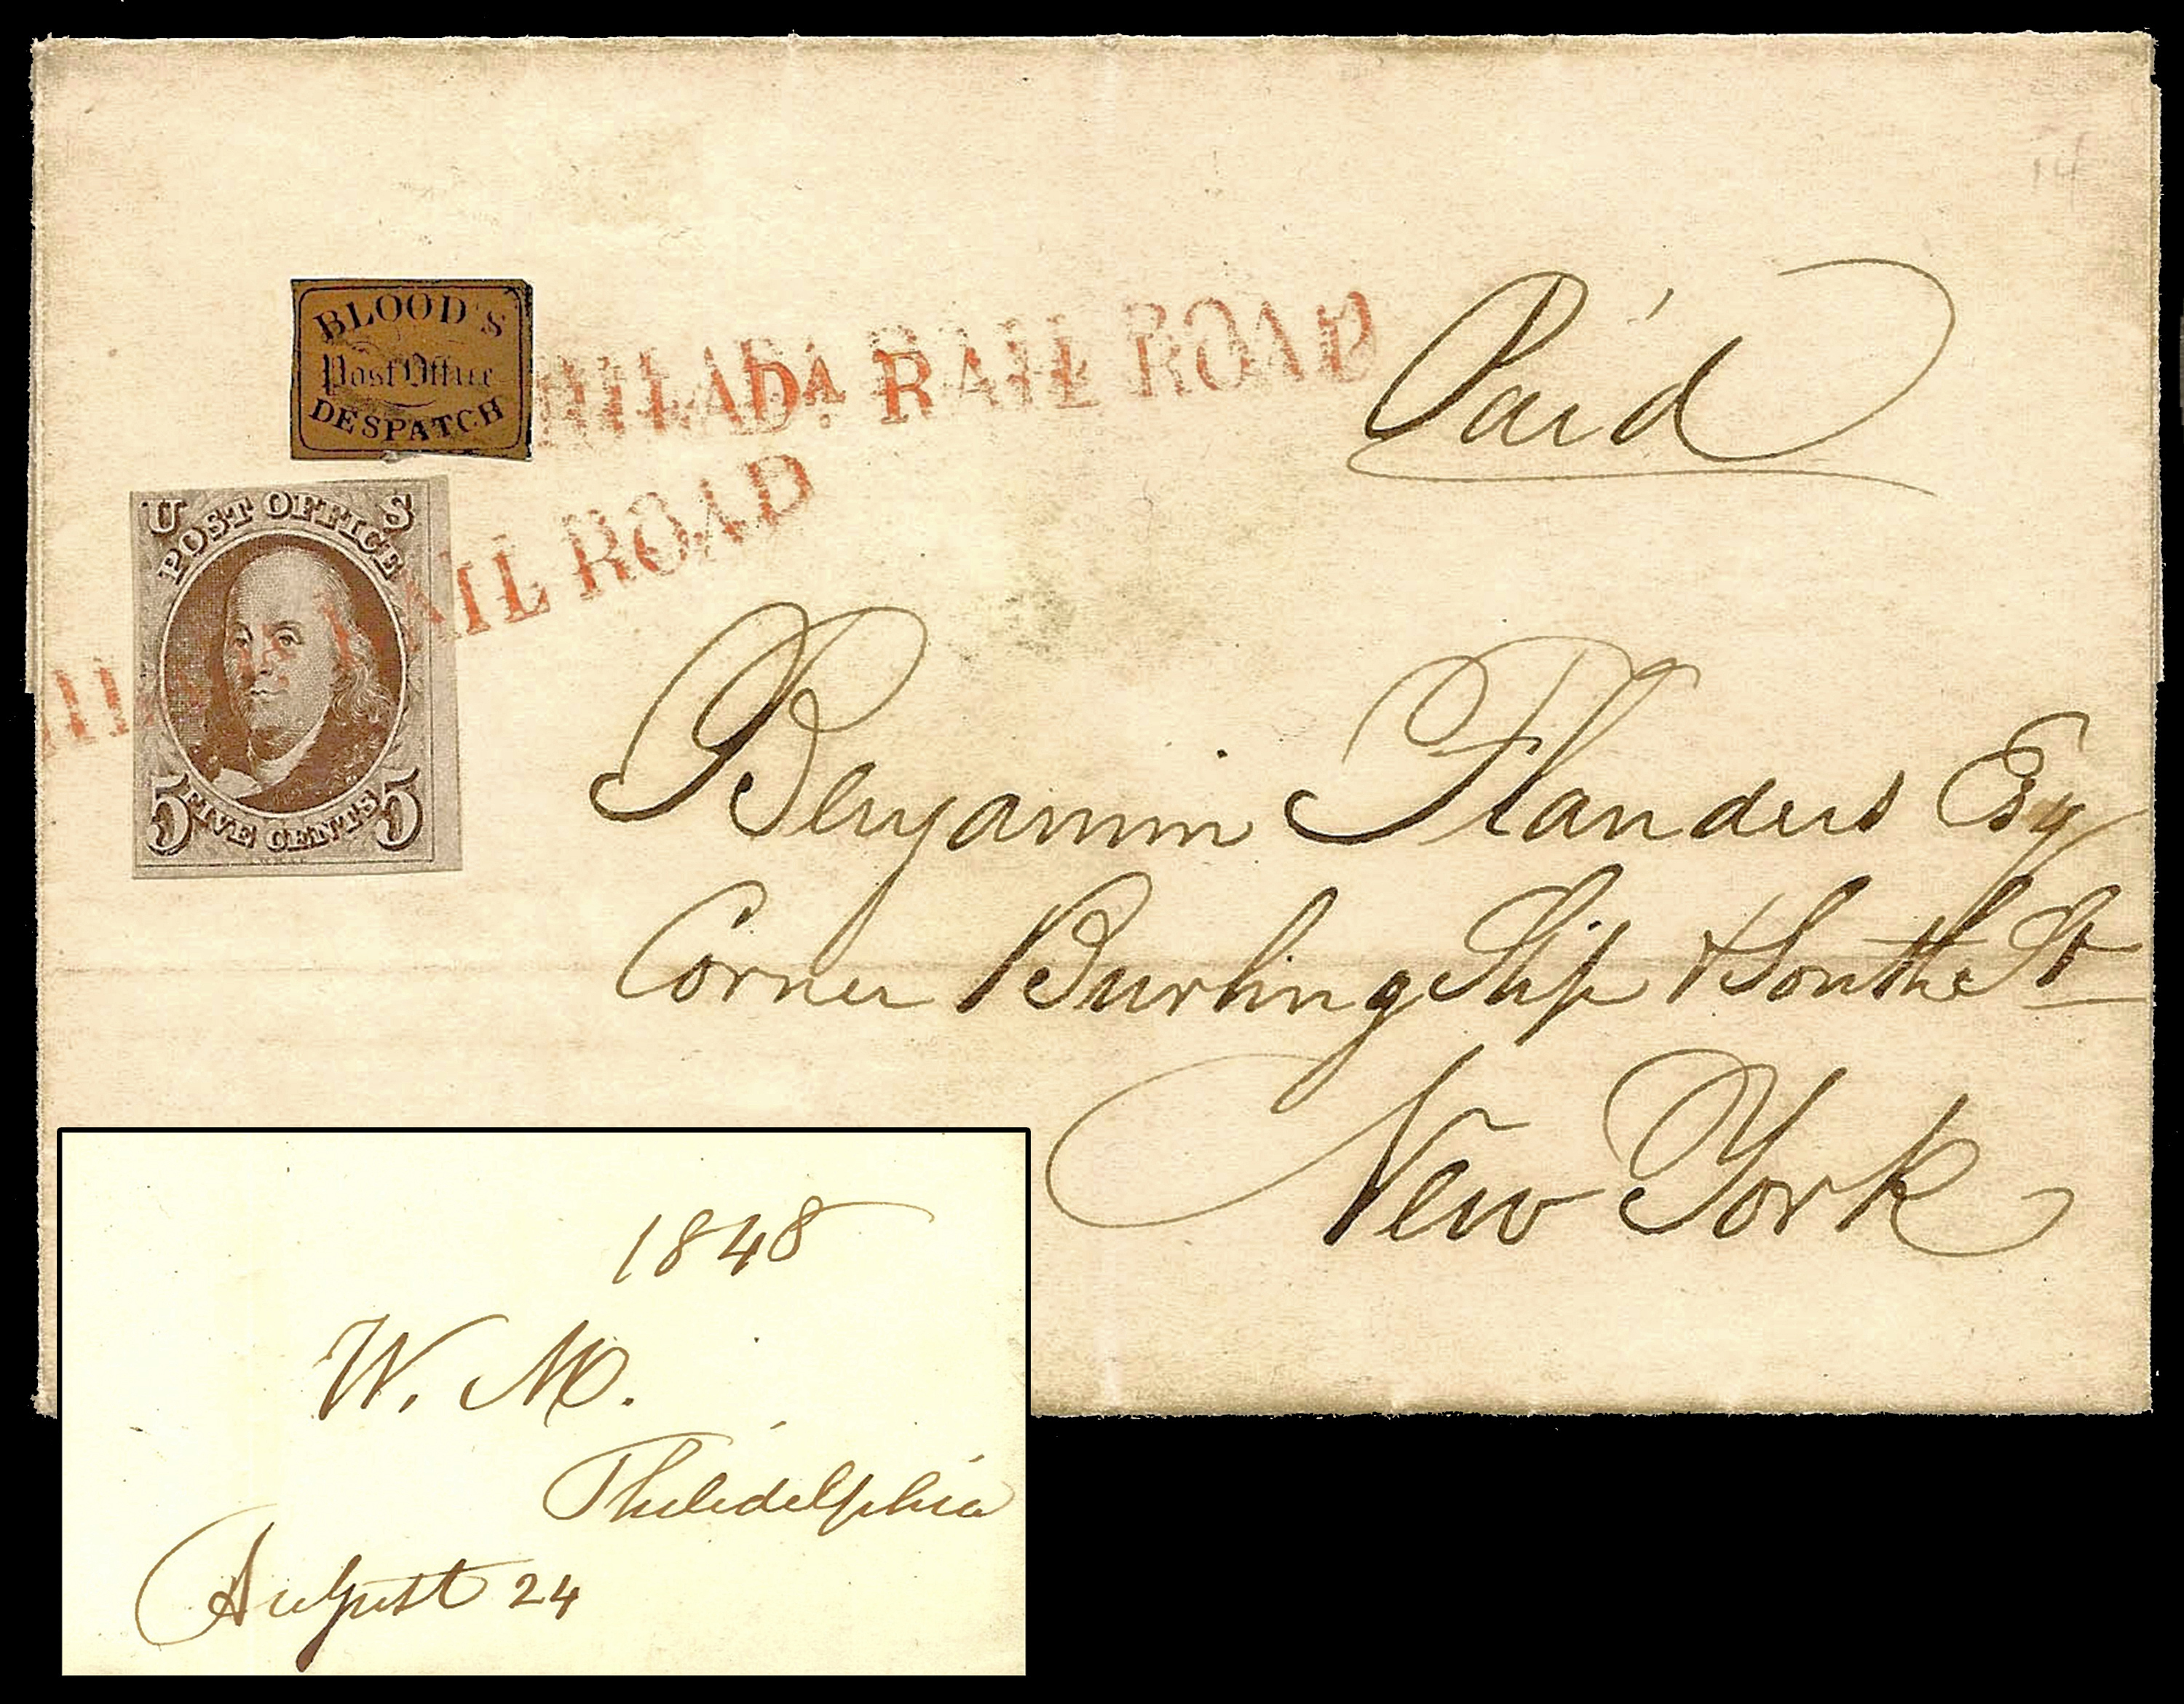 14
BLOOD'S
Post Office
DESPATCH
HILADA. RAIL ROAD
Paid
U S
POST OFFICE
5 FIVE CENTS 5
RAIL ROAD
Benjamin Flanders Esq
Corner Burling Slip & South St
New York
1848
W. M.
Philidelphia
August 24